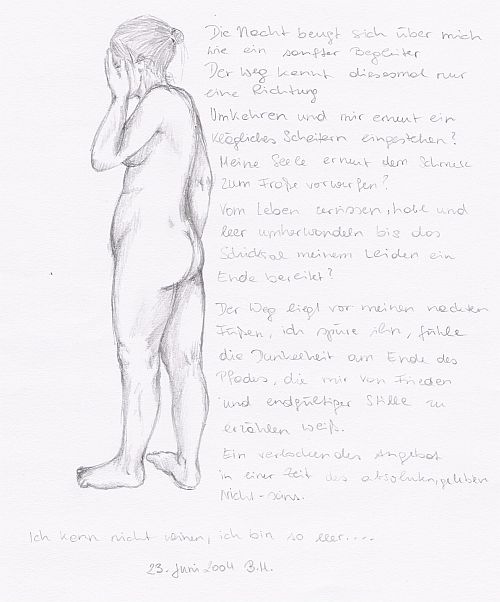 Die Nacht beugt sich über mich
wie ein sanfter Begleiter
Der Weg kennt diesesmal nur
eine Richtung
Umkehren und mir erneut ein
klägliches Scheitern eingestehen?
Meine Seele erneut dem Schmerz
zum Fraße vorwerfen?
Vom Leben zerrissen, hohl und
leer umherwandeln bis das
Schicksal meinem Leiden ein
Ende bereitet?
Der Weg liegt vor meinen nackten
Füßen, ich spüre ihn, fühle
die Dunkelheit am Ende des
Pfades, die mir von Frieden
und endgültiger Stille zu
erzählen weiß.
Ein verlockendes Angebot
in einer Zeit des absoluten, gelebten
Nicht-seins.
Ich kann nicht weinen, ich bin so leer....
23. Juni 2004 B.H.